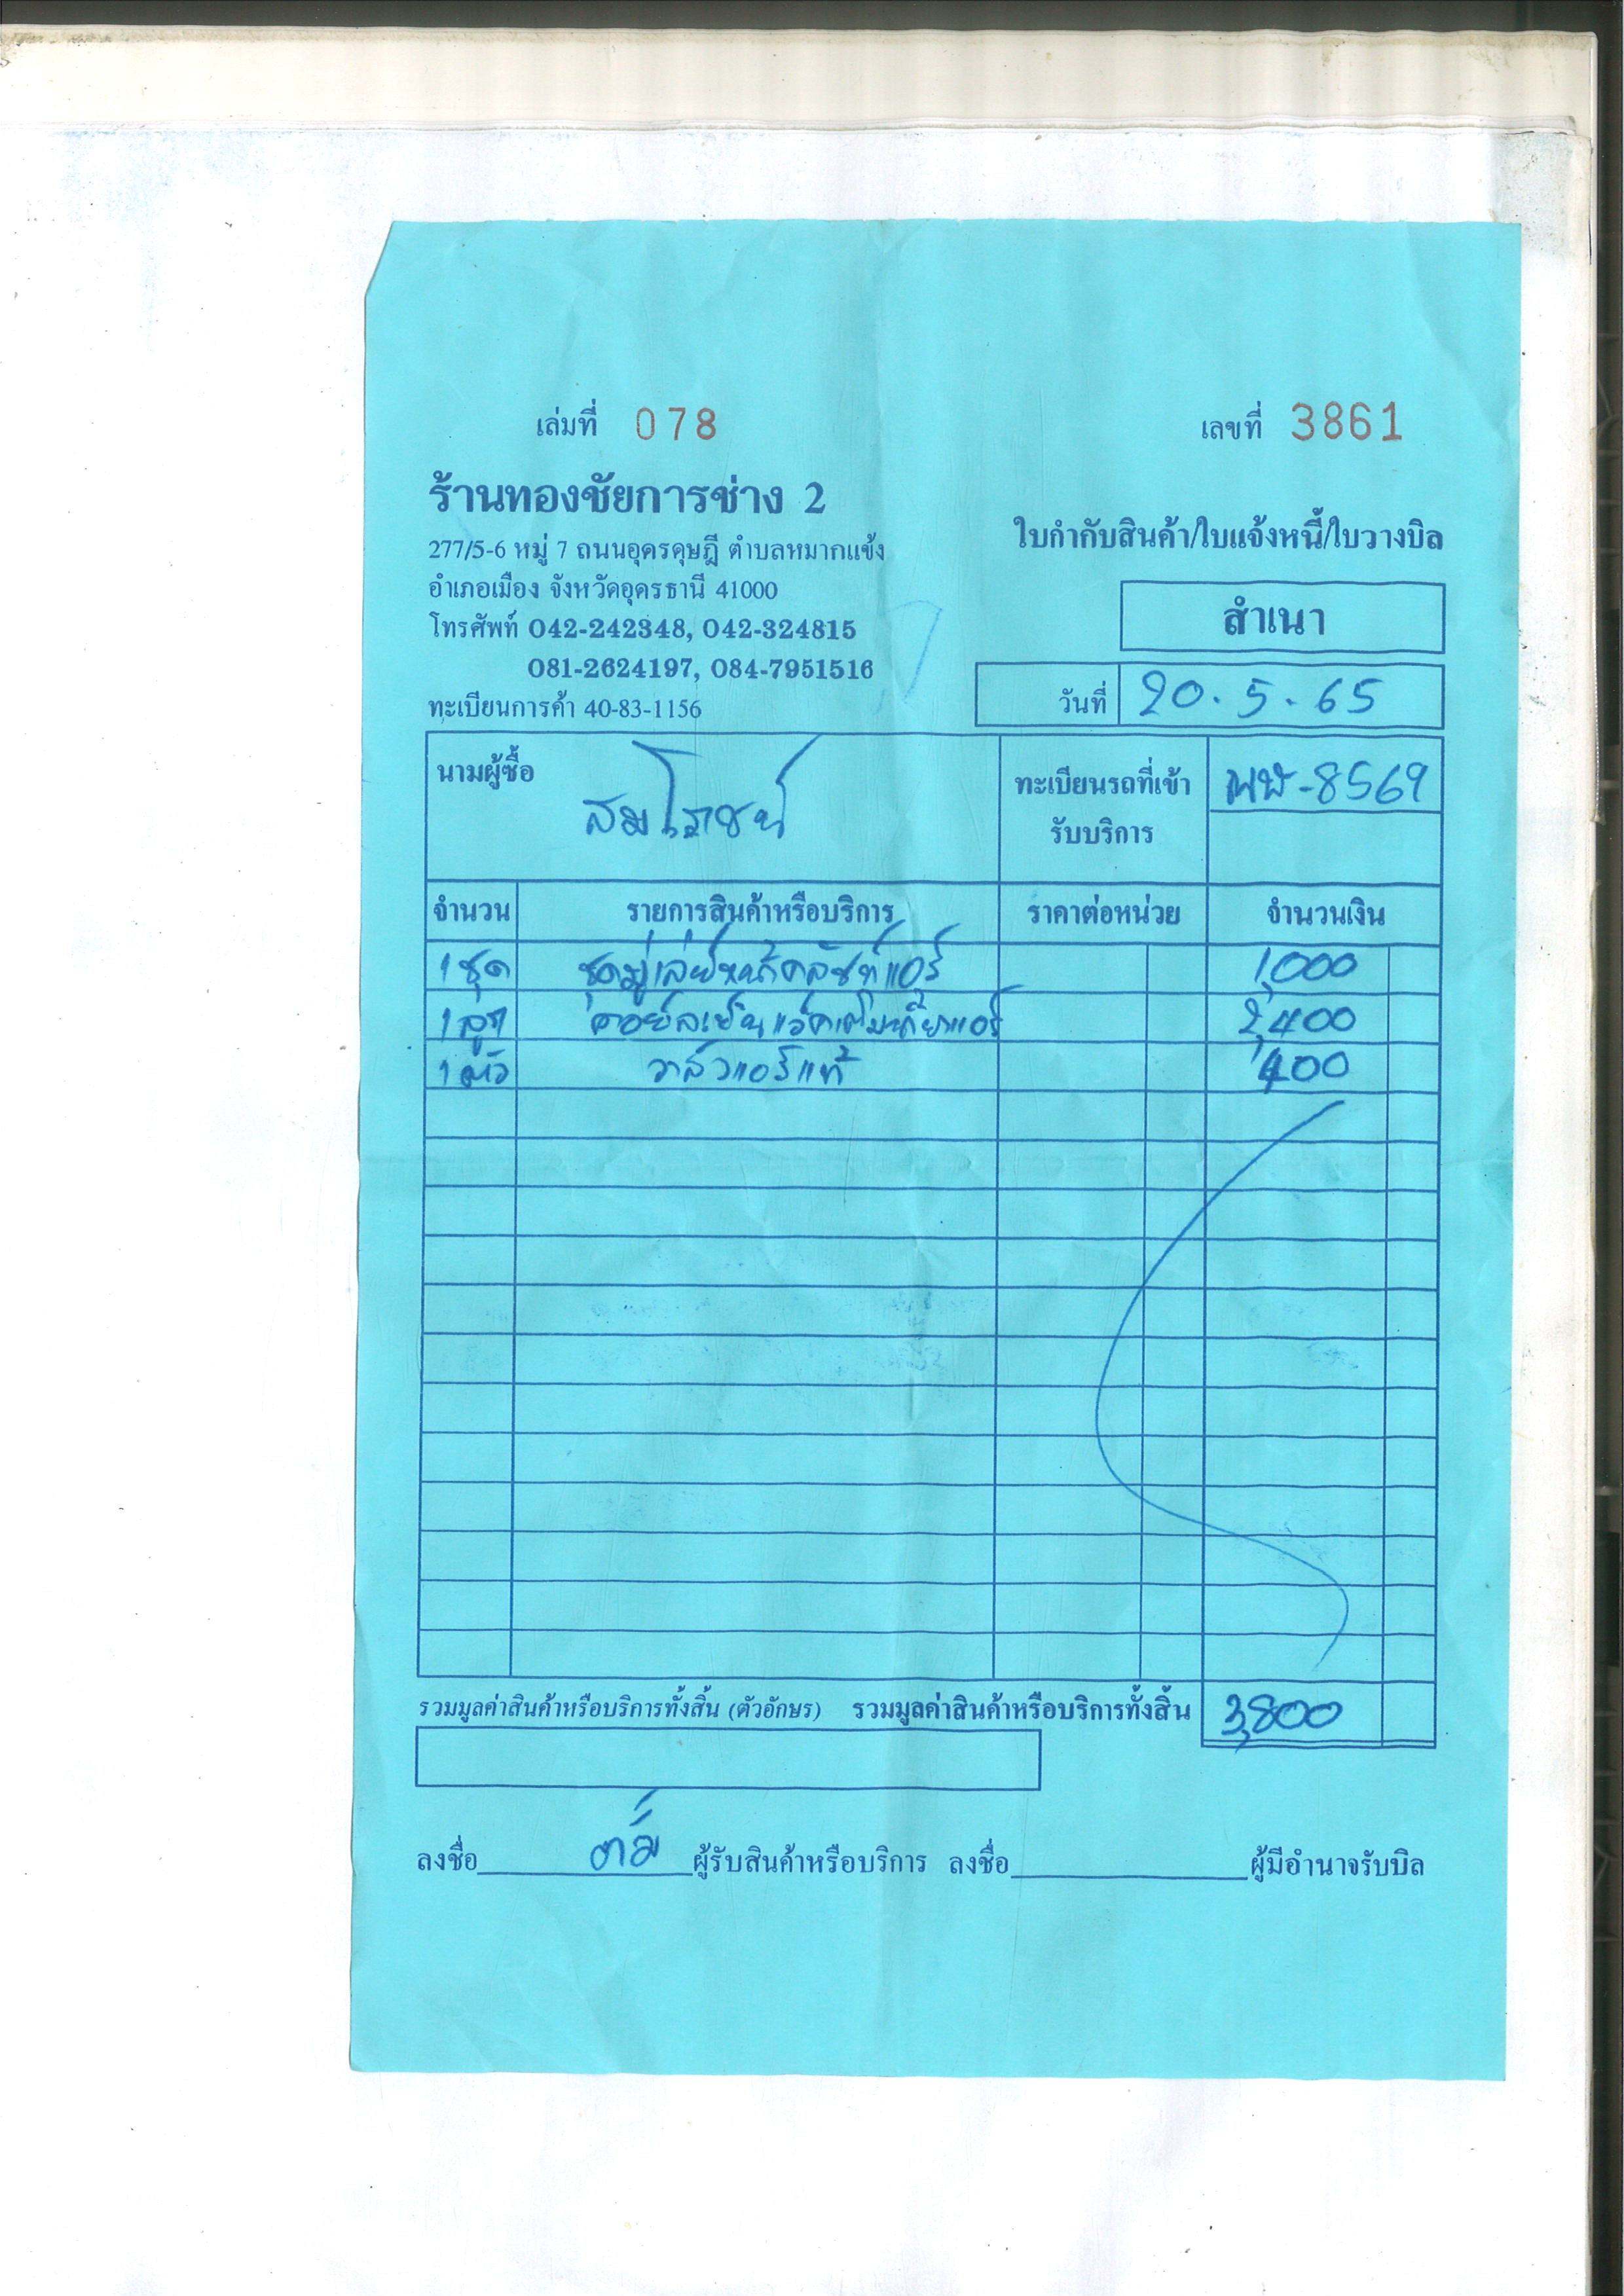 เล่มที่ 078
เลขที่ 3861
ร้านทองชัยการช่าง 2
277/5-6 หมู่ 7 ถนนอุดรดุษฎี ตำบลหมากแข้ง
อำเภอเมือง จังหวัดอุดรธานี 41000
โทรศัพท์ 042-242348, 042-324815
081-2624197, 084-7951516
ทะเบียนการค้า 40-83-1156
ใบกำกับสินค้า/ใบแจ้งหนี้/ใบวางบิล
สำเนา
วันที่ 20.5.65
นามผู้ซื้อ สมโรชน์
ทะเบียนรถที่เข้า
รับบริการ
-8569
จำนวน รายการสินค้าหรือบริการ ราคาต่อหน่วย จำนวนเงิน
1 ชุด ชุดมู่เล่ย์หน้าคลัชท์แอร์ 1,000
1 ลูก คอยล์เย็น 2,400
1 ตัว วาล์วแอร์แท้ 400
รวมมูลค่าสินค้าหรือบริการทั้งสิ้น (ตัวอักษร) รวมมูลค่าสินค้าหรือบริการทั้งสิ้น 3,800
ลงชื่อ ผู้รับสินค้าหรือบริการ ลงชื่อ ผู้มีอำนาจรับบิล